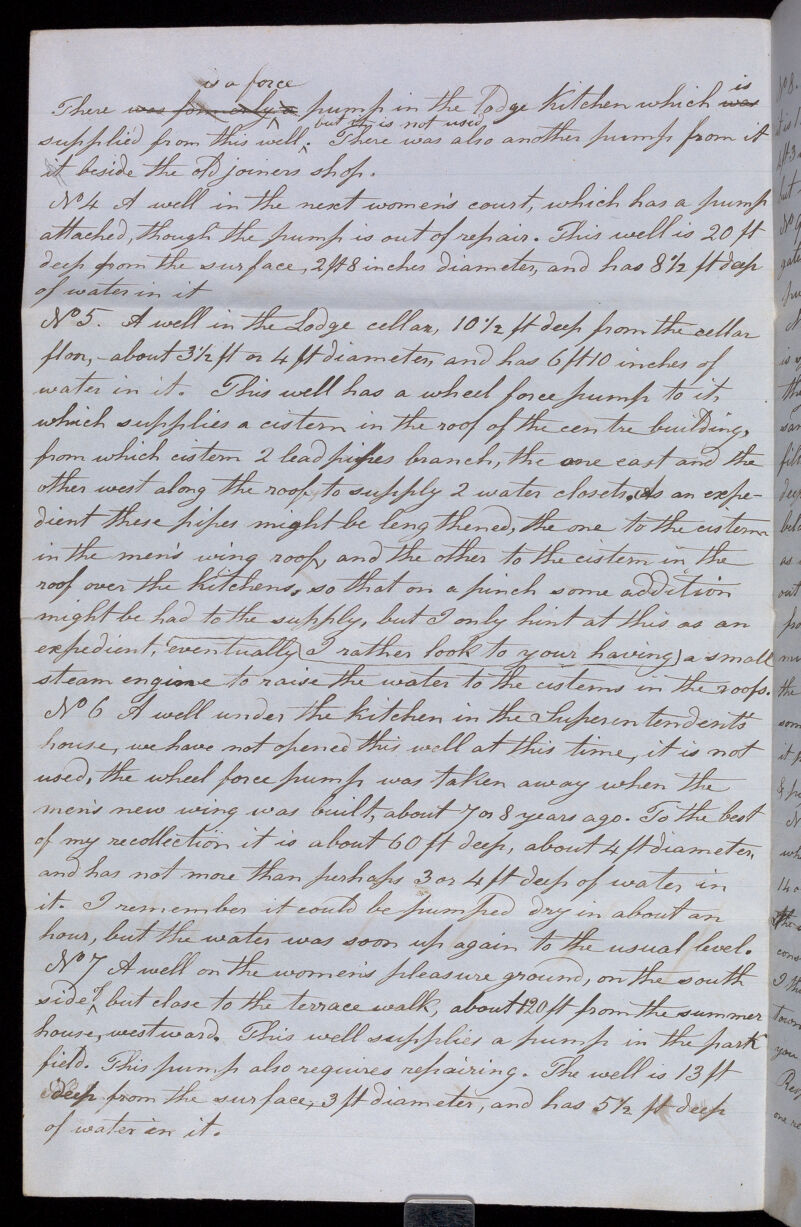 is a force
There was formerly a pump in the Lodge Kitchen which was is
but it is not used
supplied from this well. There was also another pump from it
it beside the old joiners shop.
No 4 A well in the next women's court, which has a pump
attached, though the pump is out of repair. This well is 20 ft
deep from the surface, 2 ft 8 inches diameter, and has 8 1/2 ft deep
of water in it
No 5. A well in the Lodge cellar, 10 1/2 ft deep from the cellar
floor, about 3 1/2 ft or 4 ft diameter, and has 6 ft 10 inches of
water in it. This well has a wheel force pump to it,
which supplies a cistern in the roof of the centre building,
from which cistern 2 lead pipes branch, the one east and the
other west along the roof, to supply 2 water closets. As an expe-
dient these pipes might be lengthened, the one to the cistern
in the men's wing roof, and the other to the cistern in the
roof over the Kitchens, so that on a pinch some addition
might be had to the supply, but I only hint at this as an
expedient, eventually (I rather look to your having) a small
steam engine to raise the water to the cisterns in the roofs.
No 6 A well under the kitchen in the Superintendent's
house, we have not opened this well at this time, it is not
used, the wheel force pump was taken away when the
men's new wing was built, about 7 or 8 years ago. To the best
of my recollection it is about 60 ft deep, about 4 ft diameter,
and has not more than perhaps 3 or 4 ft deep of water in
it. I remember it could be pumped dry in about an
hour, but the water was soon up again to the usual level.
No 7 A well on the women's pleasure ground, on the south
side of but close to the terrace walk, about 120 ft from the summer
house, westward. This well supplies a pump in the park
field. This pump also requires repairing. The well is 13 ft
deep from the surface, 3 ft diameter, and has 5 1/2 ft deep
of water in it.